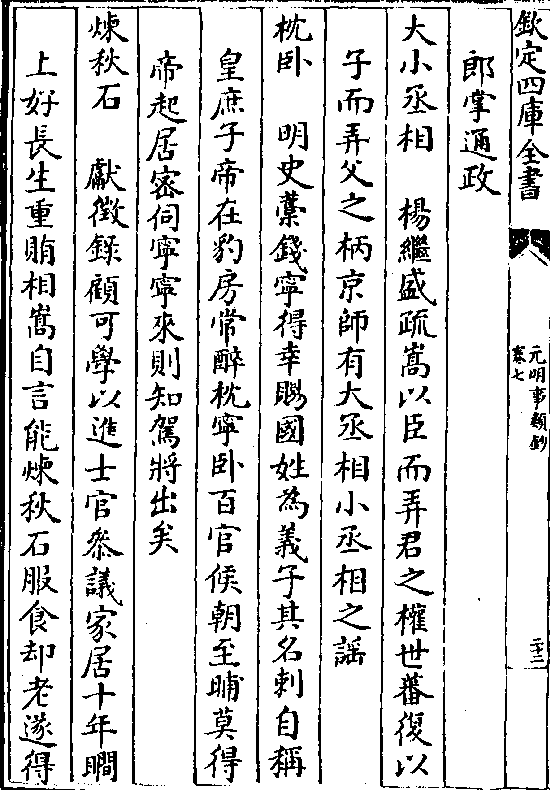 欽定四庫全書
元明事類鈔
卷七
二十二
郎掌通政
大小丞相　楊繼盛疏嵩以臣而弄君之權世蕃復以
子而弄父之柄京師有大丞相小丞相之謡
枕卧　明史藁錢寧得幸賜國姓為義子其名刺自稱
皇庶子帝在豹房常醉枕寧卧百官候朝至晡莫得
帝起居宻伺寧寧來則知駕將出矣
煉秋石　獻徵錄顧可學以進士官叅議家居十年瞷
上好長生重賄相嵩自言能煉秋石服食却老遂得